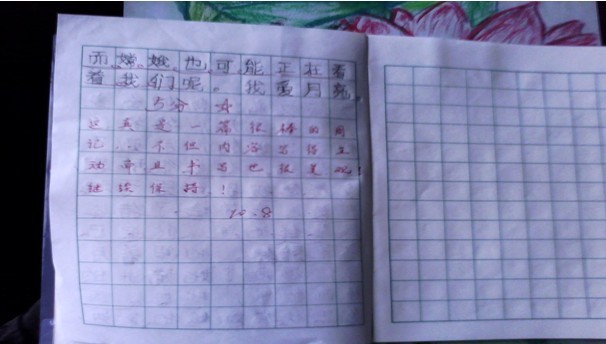 而嫦娥也可能正在看
着我们呢。我爱月亮。
5分
这真是一篇很棒的周
记...不但内容写得生
动而且书写也很美观!
继续保持!